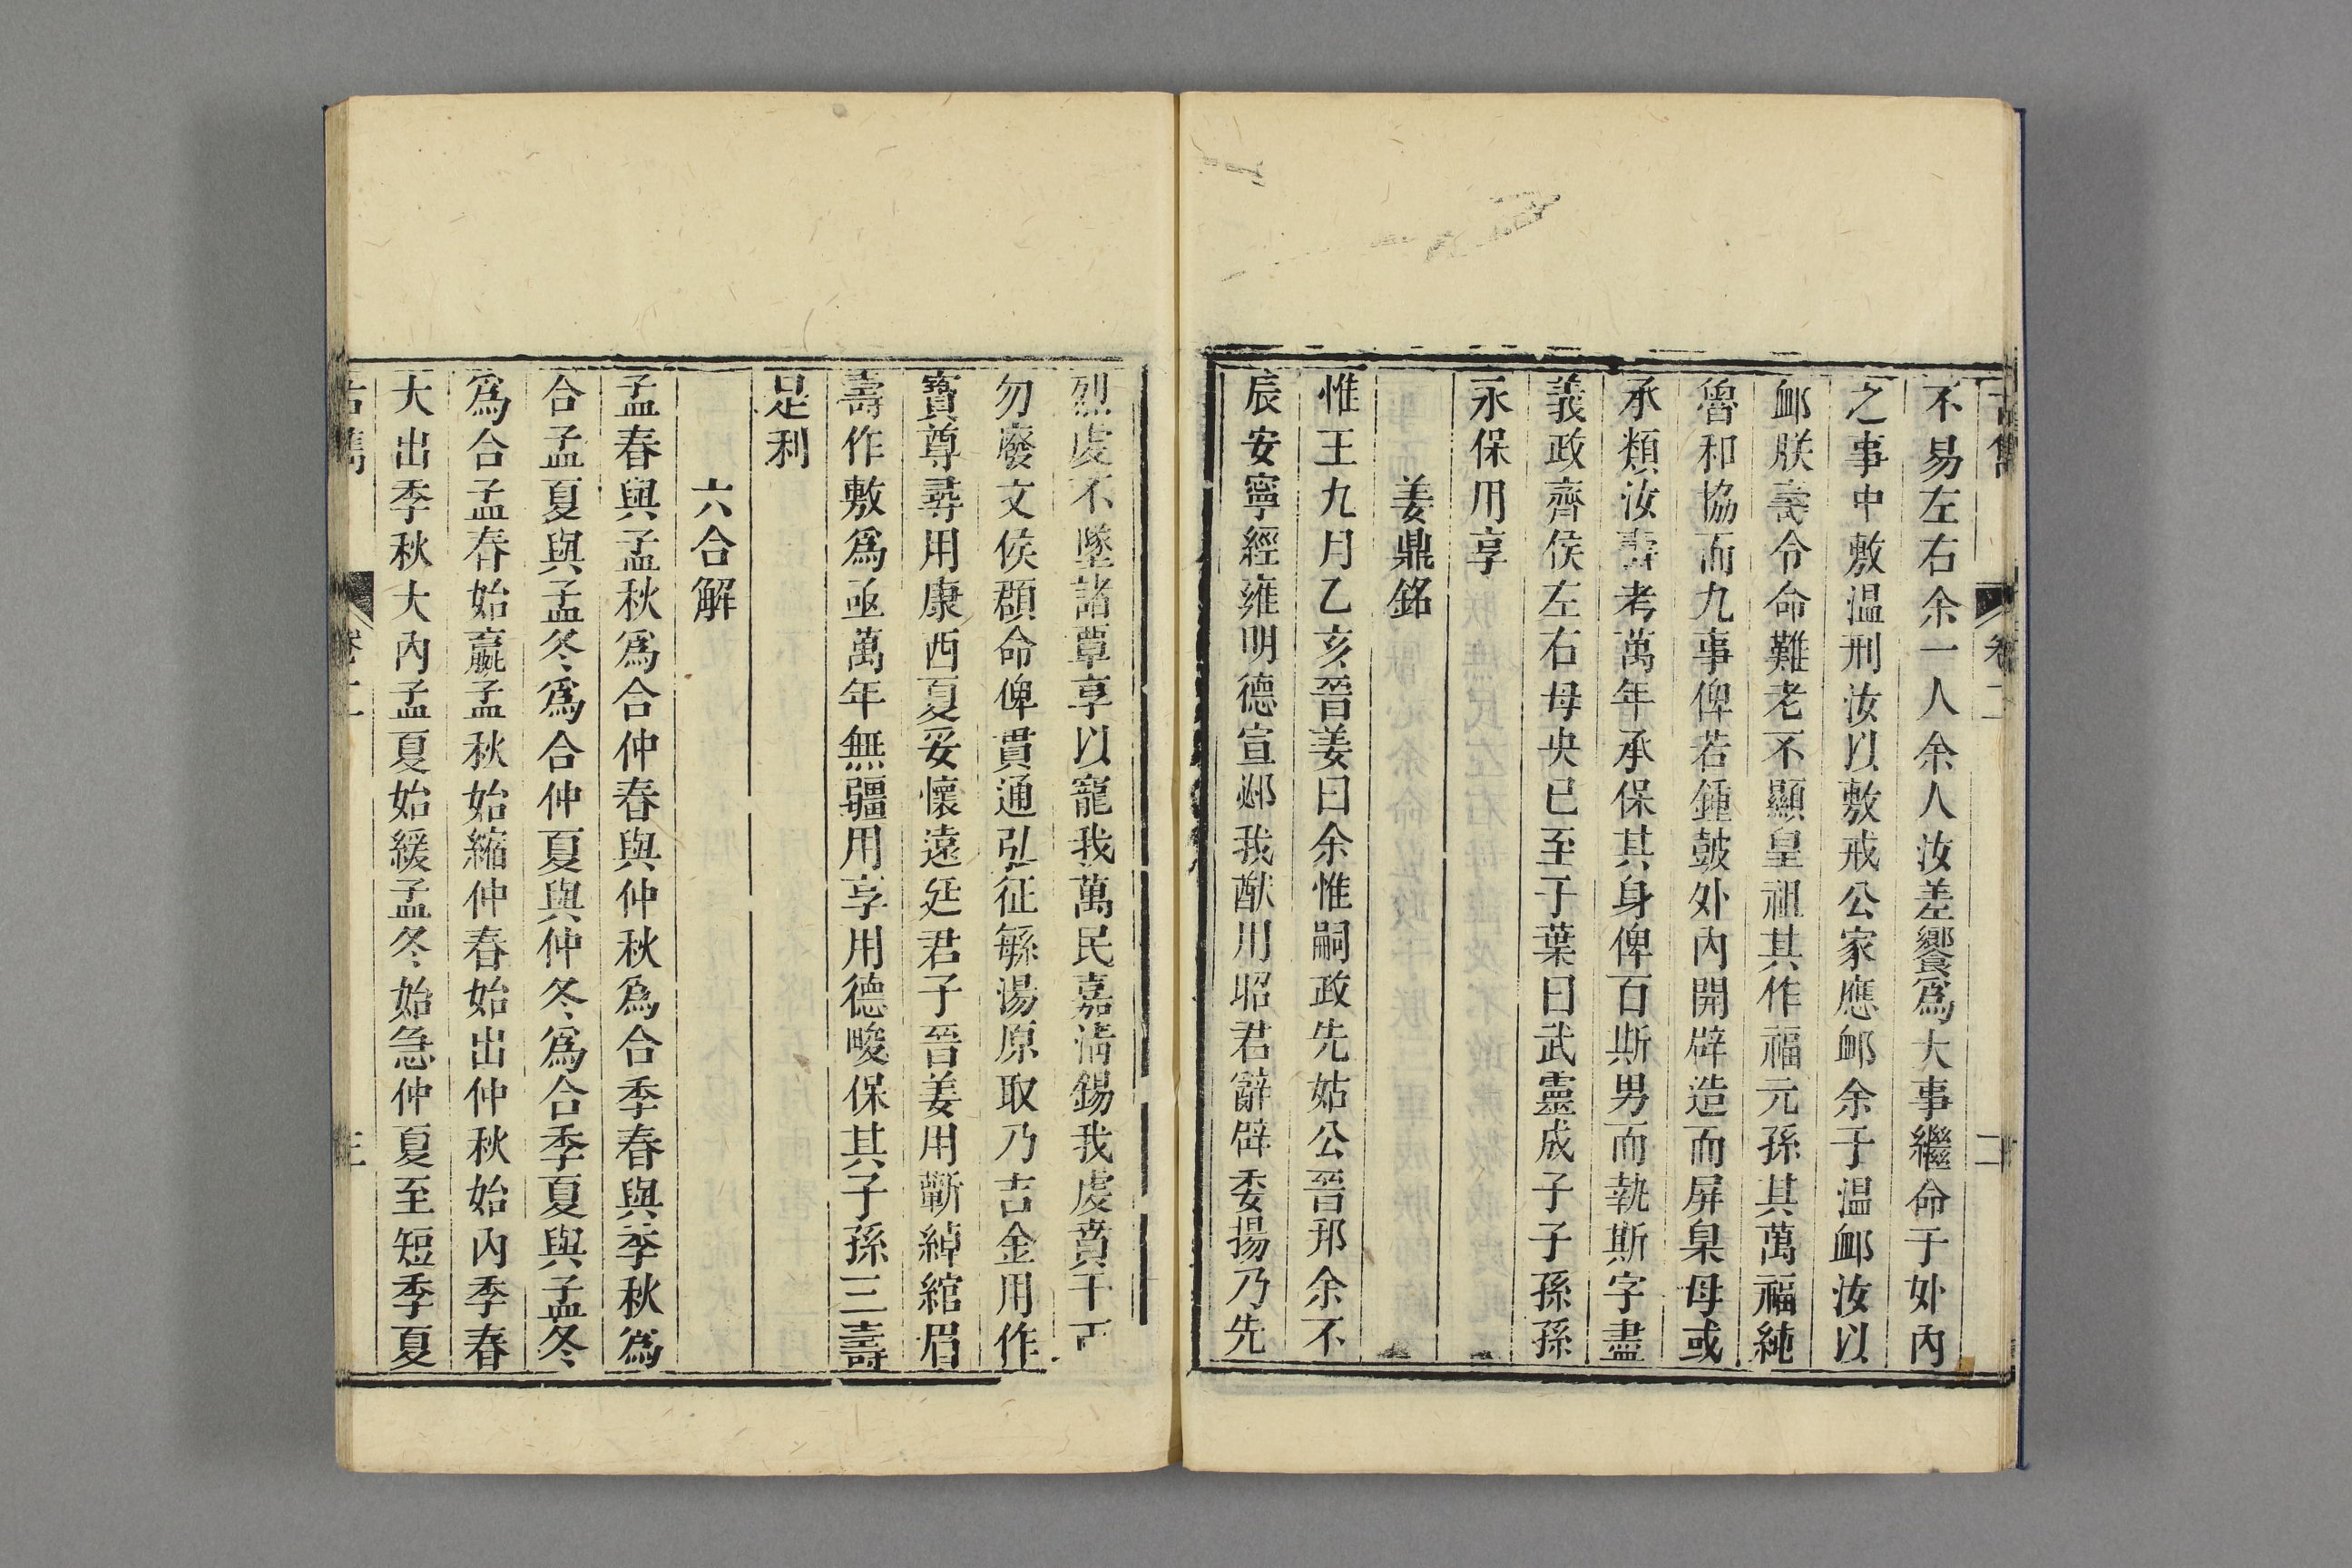 古雋 卷二 二
不易左右余一人余人汝差饗爲大事繼命于外內
之事中敷温刑汝以敷戒公家應卹余于温卹汝以
卹朕壽令命難老不顯皇祖其作福元孫其萬福純
魯和協而九事俾若鍾鼓外內開辟造而屏臬母或
承類汝壽考萬年承保其身俾百斯男而執斯字盡
義政齊侯左右母央已至于葉曰武靈成子子孫孫
永保用享
姜鼎銘
惟王九月乙亥晉姜曰余惟嗣政先姑公晉邦余不
辰安寧經雍明德宣邲我猷用昭君辭辟委揚乃先
烈虔不墜諸覃享以寵我萬民嘉淸錫我虔賁千
勿廢文侯頵命俾貫通弘征繇湯原取乃吉金用作
寶尊尋用康西夏妥懷遠廷君子晉姜用蘄綽綰眉
壽作敷爲亟萬年無疆用享用德畯保其子孫三壽
是利
六合解
孟春與孟秋爲合仲春與仲秋爲合季春與季秋爲
合孟夏與孟冬爲合仲夏與仲冬爲合季夏與孟冬
爲合孟春始贏孟秋始縮仲春始出仲秋始內季春
大出季秋大內孟夏始緩孟冬始急仲夏至短季夏
古雋 卷二 三